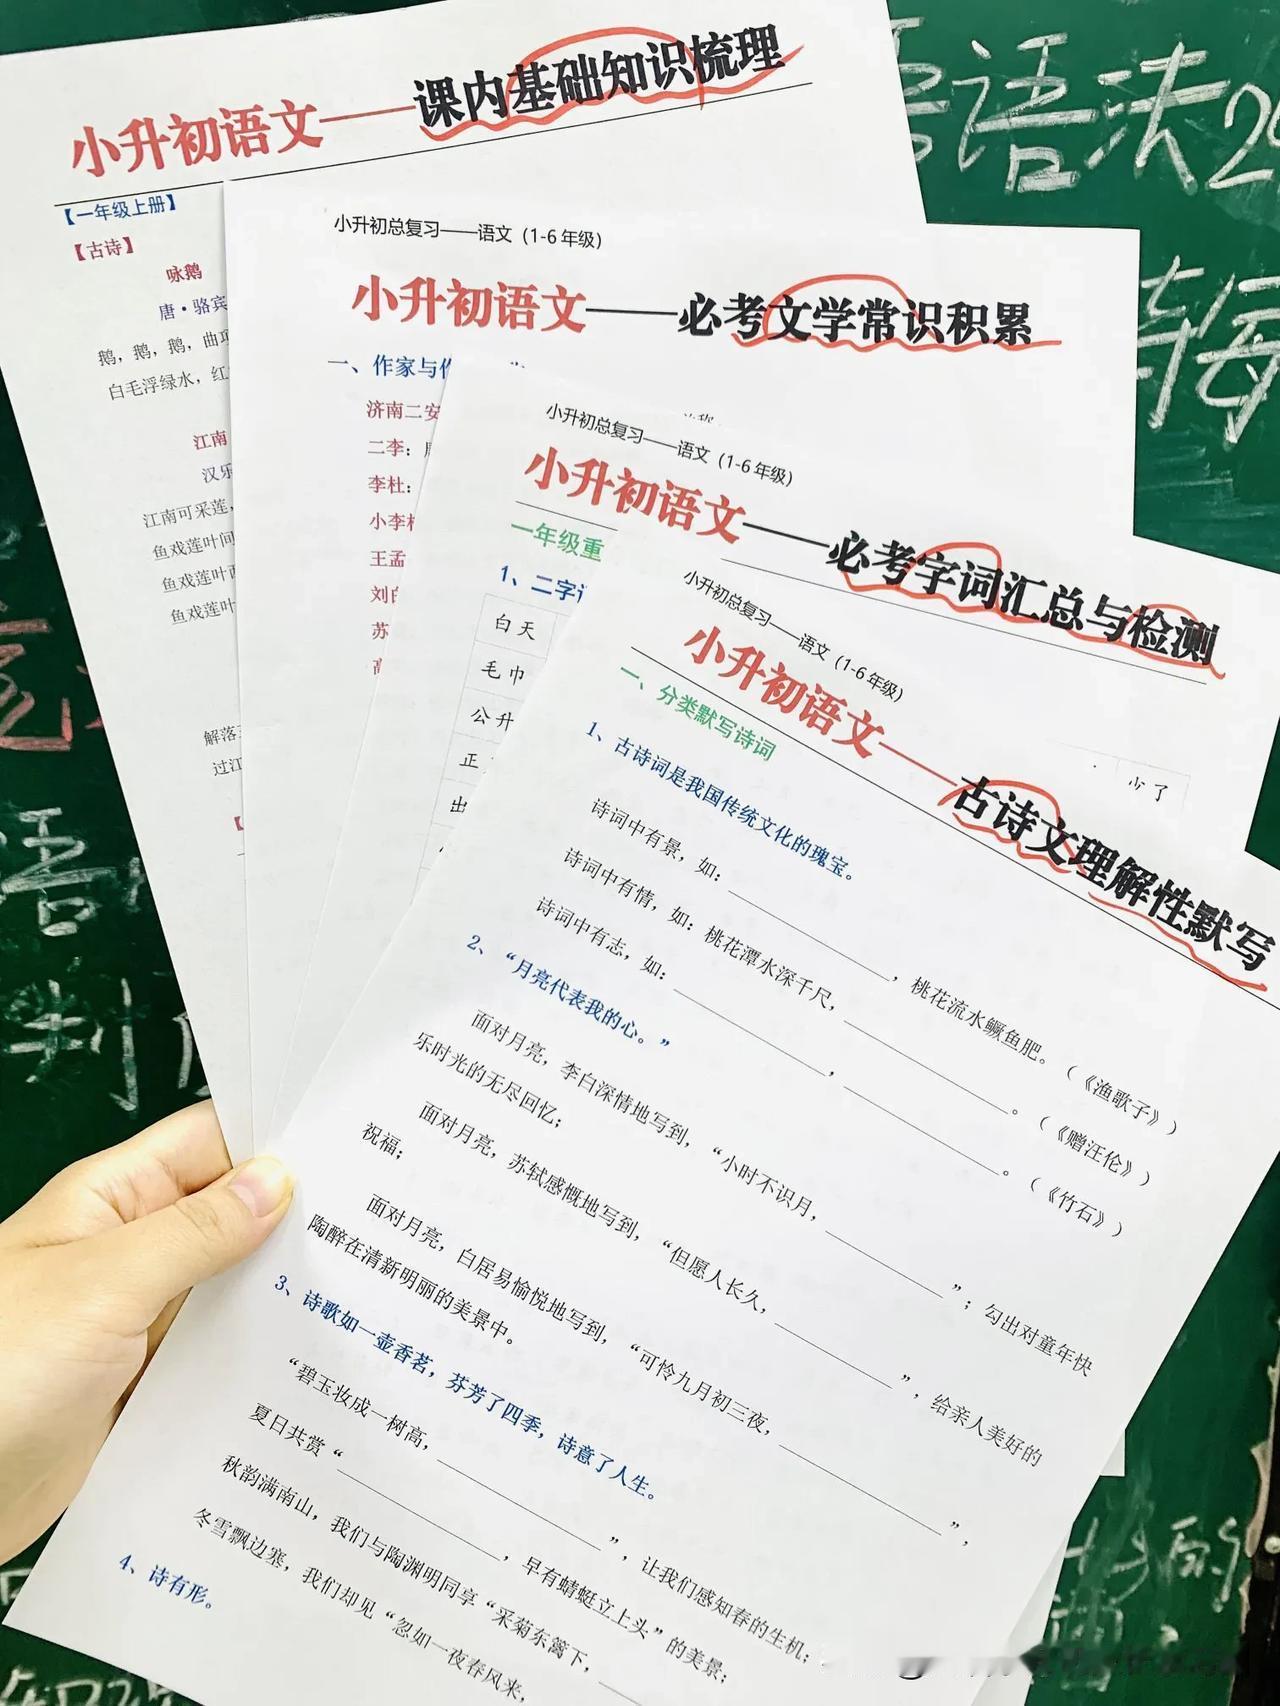 小升初语文——课内基础知识梳理
【一年级上册】
【古诗】
咏鹅
唐·骆宾
鹅，鹅，鹅，曲项
白毛浮绿水，红
江南
汉乐
江南可采莲，
鱼戏莲叶间
鱼戏莲叶西
鱼戏莲叶
解落三
过江
小升初总复习——语文（1-6年级）
小升初语文——必考文学常识积累
一、作家与作
济南二安
二李：
李杜：
小李杜
王孟
刘白
苏
小升初总复习——语文（1-6年级）
小升初语文——必考字词汇总与检测
一年级重
1、二字词
白天
毛巾
公升
正
出
少了
小升初总复习——语文（1-6年级）
小升初语文——古诗文理解性默写
一、分类默写诗词
1、古诗词是我国传统文化的瑰宝。
诗词中有景，如：____________，桃花流水鳜鱼肥。（《渔歌子》）
诗词中有情，如：桃花潭水深千尺，____________。（《赠汪伦》）
诗词中有志，如：____________，____________。（《竹石》）
2、“月亮代表我的心。”
面对月亮，李白深情地写到，“小时不识月，____________”；勾出对童年快
乐时光的无尽回忆；
面对月亮，苏轼感慨地写到，“但愿人长久，____________”，给亲人美好的
祝福；
面对月亮，白居易愉悦地写到，“可怜九月初三夜，____________”，
陶醉在清新明丽的美景中。
3、诗歌如一壶香茗，芬芳了四季，诗意了人生。
“碧玉妆成一树高，____________”，让我们感知春的生机；
夏日共赏“____________，早有蜻蜓立上头”的美景；
秋韵满南山，我们与陶渊明同享“采菊东篱下，
冬雪飘边塞，我们却见“忽如一夜春风来，
4、诗有形。
语法
语
制